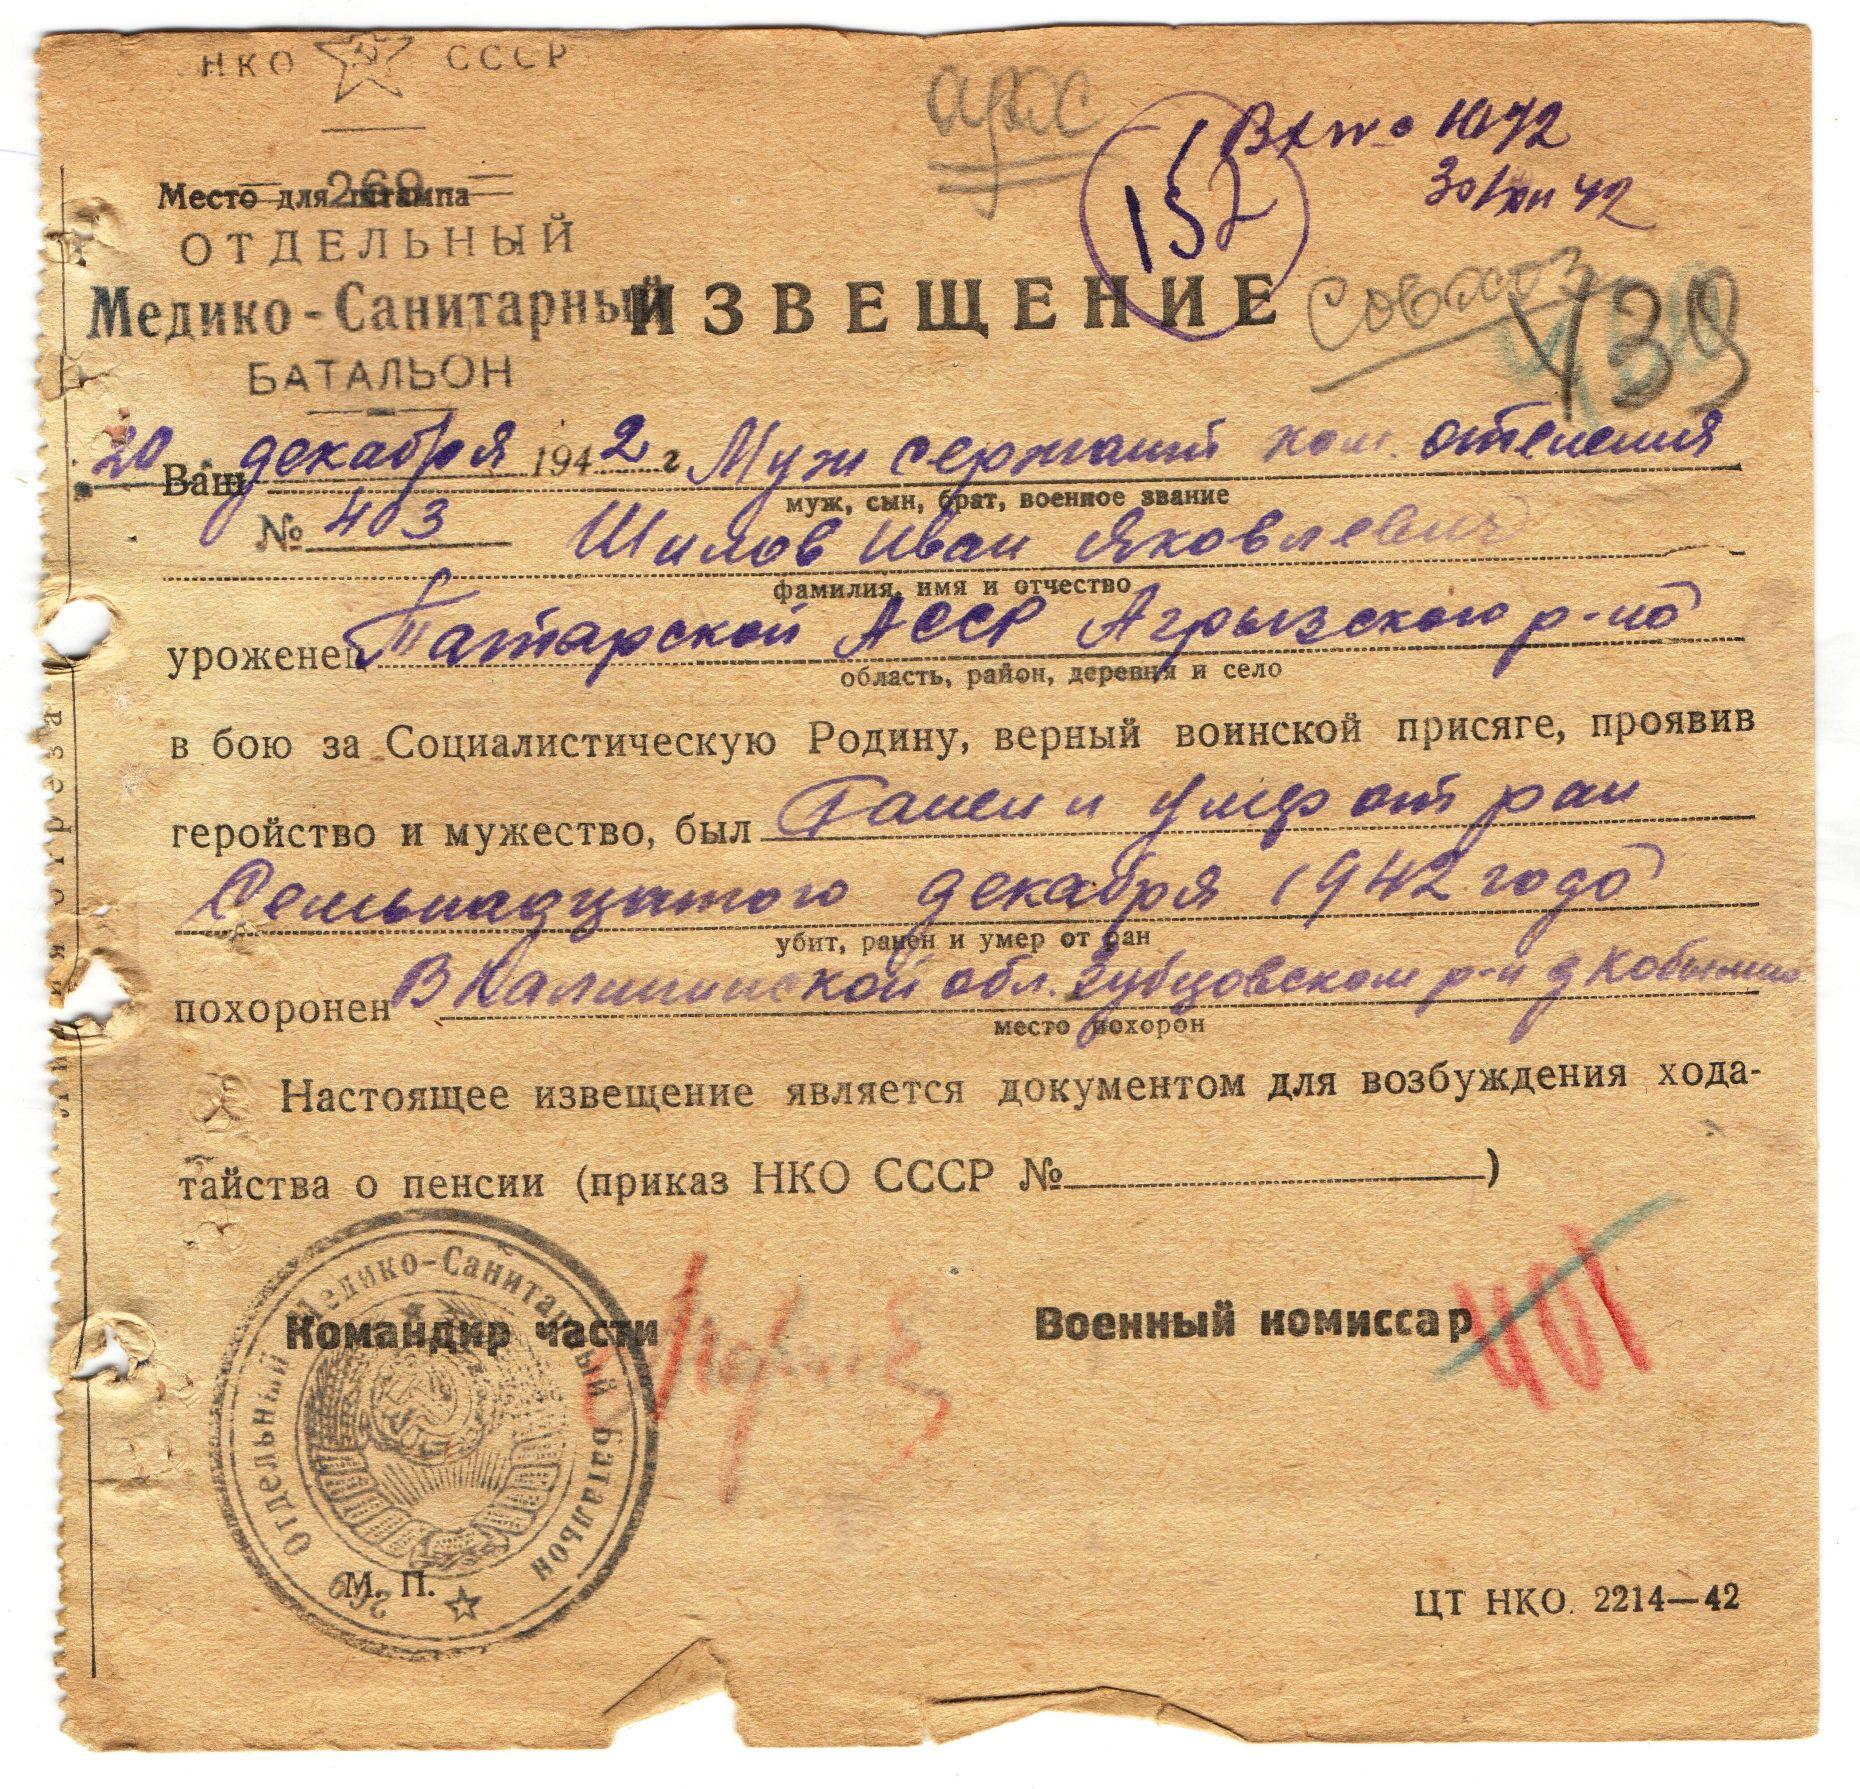 НКО СССР
269
Место для штампа
ОТДЕЛЬНЫЙ
Медико-Санитарный
БАТАЛЬОН
152
Вх № 1072
30/XII 42
Совхоз
439
ИЗВЕЩЕНИЕ
20 декабря 1942 г
№ 403
Ваш Муж сержант ком. отеления
муж, сын, брат, военное звание
Шилов Иван Яковлевич
фамилия, имя и отчество
уроженец Татарской АССР Агрызского р-на
область, район, деревня и село
в бою за Социалистическую Родину, верный воинской присяге, проявив
геройство и мужество, был Ранен и умер от ран
Семьнадцатого декабря 1942 года
убит, ранен и умер от ран
похоронен В Калининской обл. Зубцовском р-н д
место похорон
Настоящее извещение является документом для возбуждения хода-
тайства о пенсии (приказ НКО СССР № )
Командир части
Военный комиссар
401
269 Отдельный Медико-Санитарный Батальон
М. П.
ЦТ НКО. 2214—42
Линия отреза